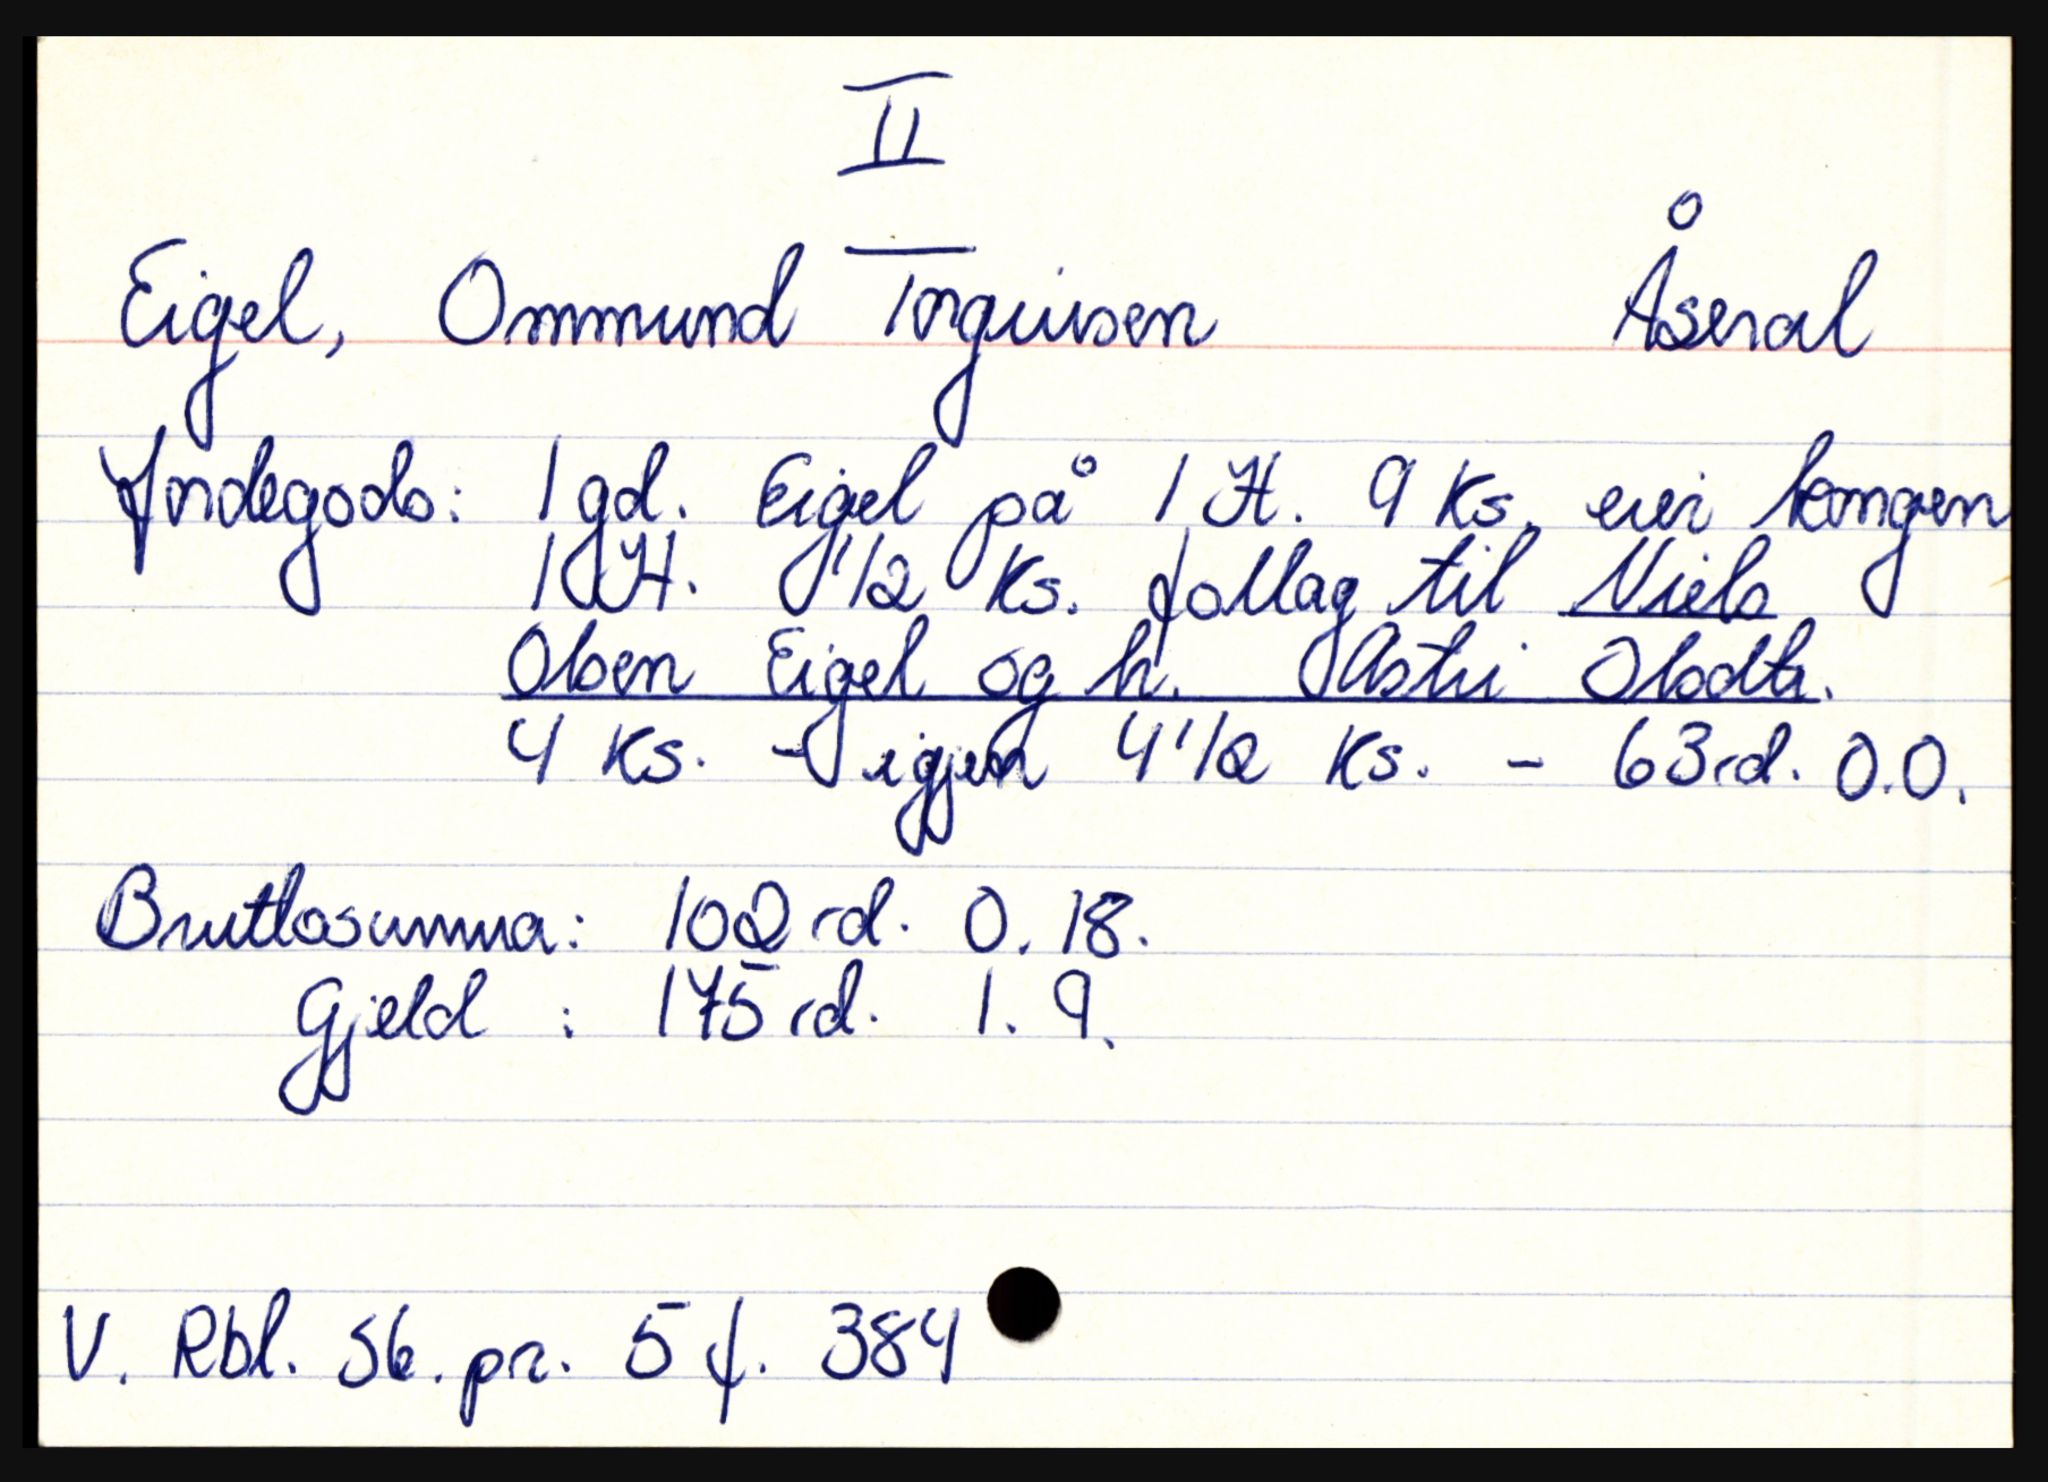 II
Eigel, Ommund Torguivsen Åseral
Jordegods: 1 gd. Eigel på 1 H. 9 Ks, eier kongen
1 H. 1/2 Ks. follag til Niels
Olsen Eigel og h. Astri Olsdtr.
4 Ks. - igjen 4 1/2 Ks. - 63 rd. 0.0.
Bruttosumma: 102 rd. 0. 18.
Gjeld : 175 rd. 1. 9.
V. Rbl. Sk. pr. 5 f. 384